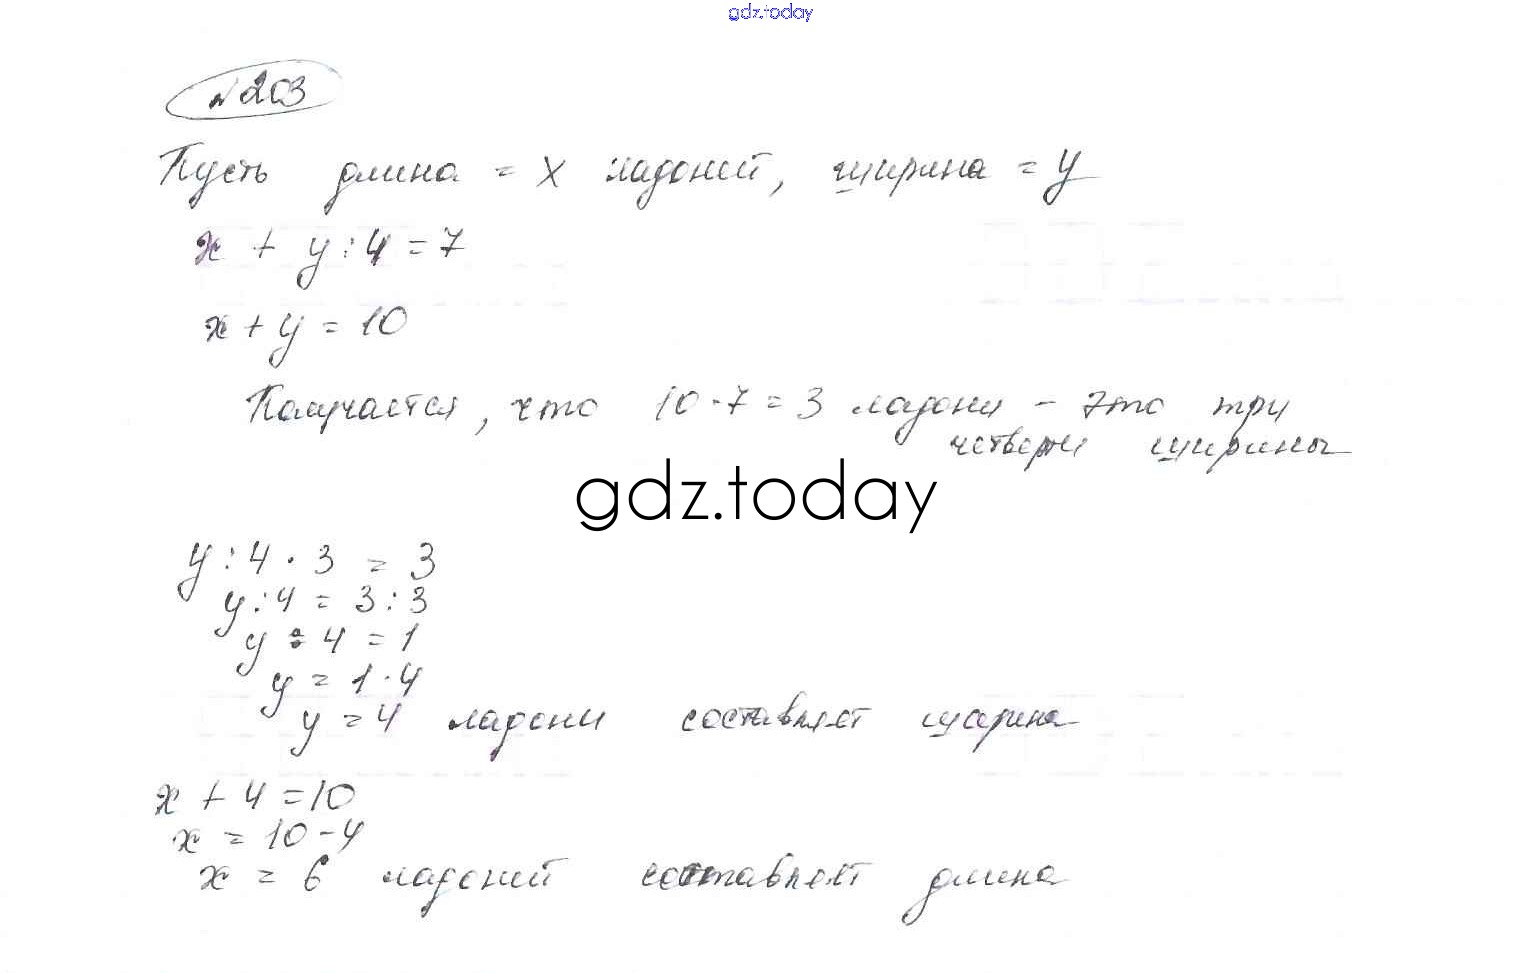 gdz.today
№203
Пусть длина = х ладоней, ширина = у
х + у : 4 = 7
х + у = 10
Получается, что 10 - 7 = 3 ладони - это три
четверти ширины
gdz.today
у : 4 · 3 = 3
у : 4 = 3 : 3
у : 4 = 1
у = 1 · 4
у = 4 ладони составляет ширина
х + 4 = 10
х = 10 - 4
х = 6 ладоней составляет длина